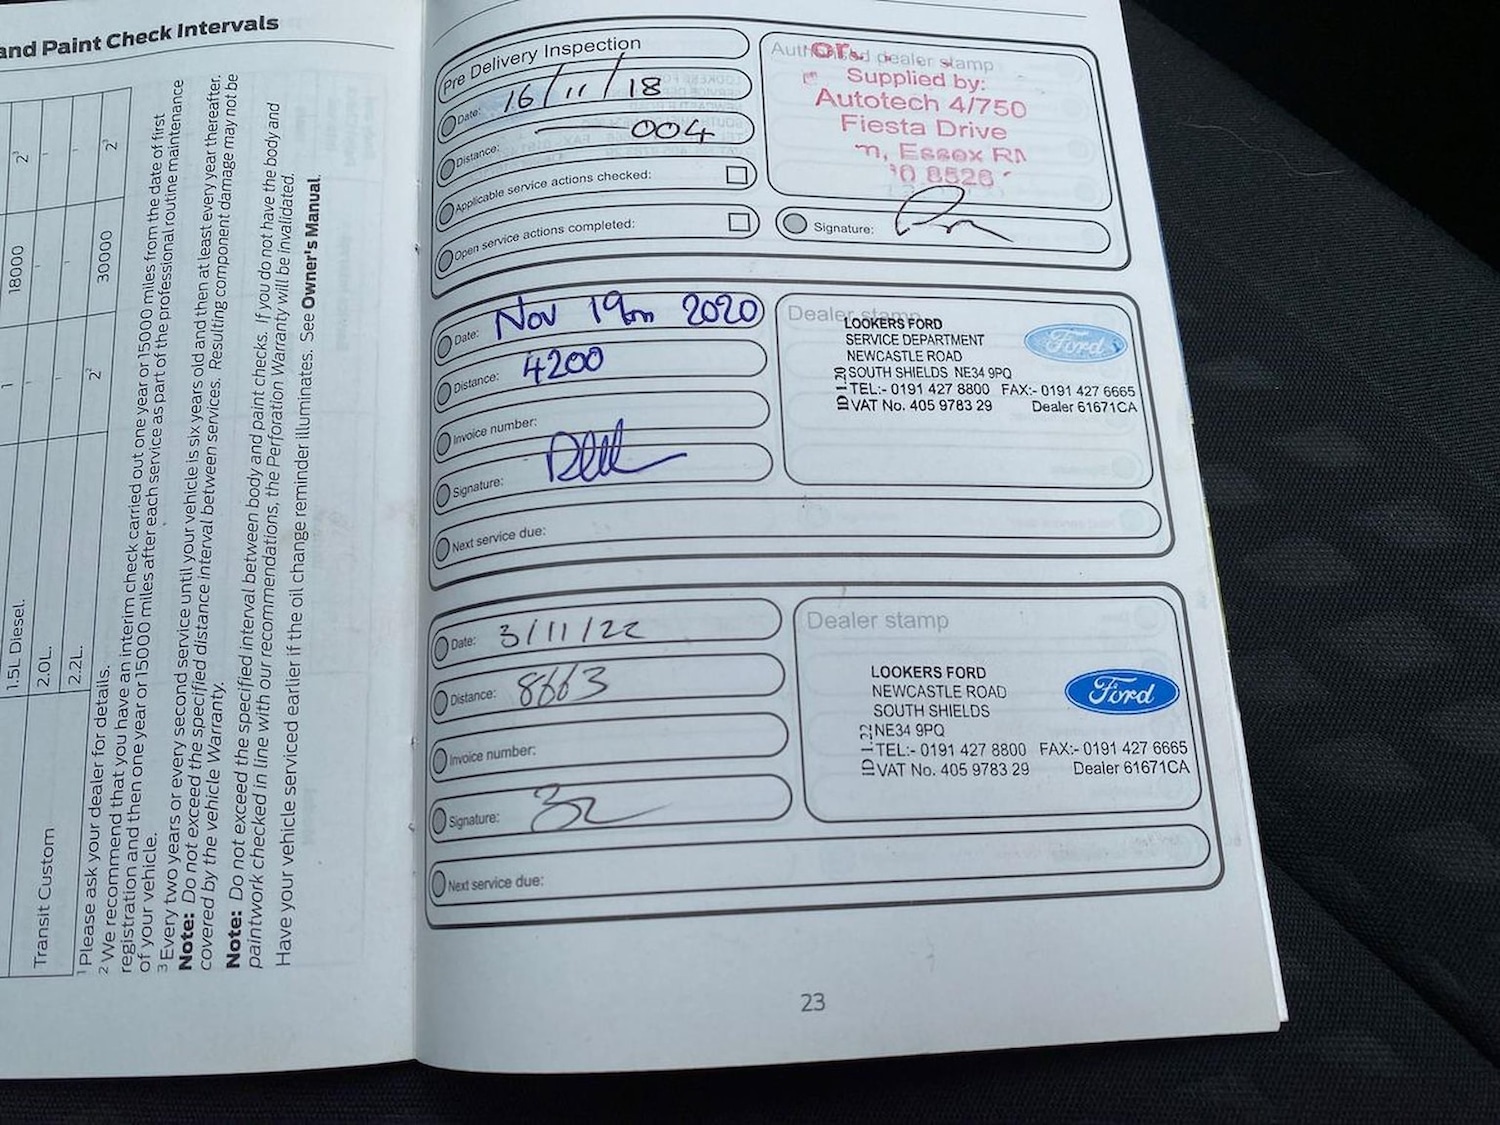 and Paint Check Intervals
18000
2³
-
-
1
-
-
30000
2³
2²
1.5L Diesel.
2.0L.
2.2L.
Transit Custom
¹ Please ask your dealer for details.
² We recommend that you have an interim check carried out one year or 15000 miles from the date of first
registration and then one year or 15000 miles after each service as part of the professional routine maintenance
of your vehicle.
³ Every two years or every second service until your vehicle is six years old and then at least every year thereafter.
Note: Do not exceed the specified distance interval between services. Resulting component damage may not be
covered by the vehicle Warranty.
Note: Do not exceed the specified interval between body and paint checks. If you do not have the body and
paintwork checked in line with our recommendations, the Perforation Warranty will be invalidated.
Have your vehicle serviced earlier if the oil change reminder illuminates. See Owner's Manual.
Pre Delivery Inspection
Date: 16/11/18
Distance: 004
Applicable service actions checked:
Open service actions completed:
Authorised dealer stamp
Supplied by:
Autotech 4/750
Fiesta Drive
Essex
8526
Signature:
Date: Nov 19th 2020
Distance: 4200
Invoice number:
Signature:
Next service due:
Dealer stamp
LOOKERS FORD
SERVICE DEPARTMENT
NEWCASTLE ROAD
SOUTH SHIELDS NE34 9PQ
TEL:- 0191 427 8800 FAX:- 0191 427 6665
VAT No. 405 9783 29 Dealer 61671CA
ID 1.20
Ford
Date: 3/11/22
Distance: 8663
Invoice number:
Signature:
Next service due:
Dealer stamp
LOOKERS FORD
NEWCASTLE ROAD
SOUTH SHIELDS
NE34 9PQ
TEL:- 0191 427 8800 FAX:- 0191 427 6665
VAT No. 405 9783 29 Dealer 61671CA
ID 1.22
Ford
23